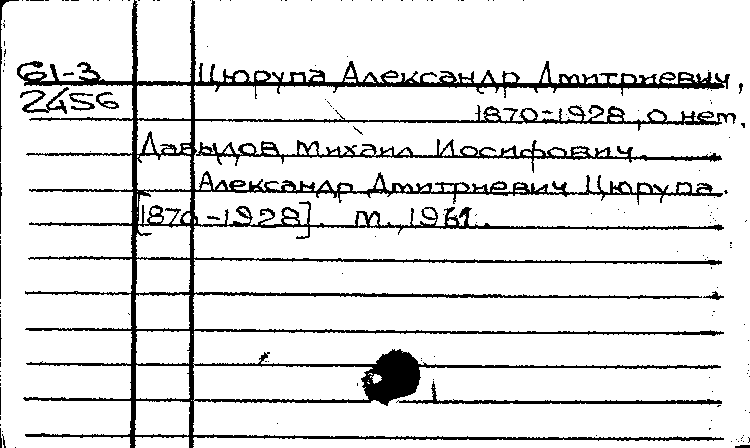 61-3 Цюрупа Александр Дмитриевич,
2456 1870-1928, о нем.
Давыдов, Михаил Иосифович.
Александр Дмитриевич Цюрупа.
[1870-1928]. М., 1961.